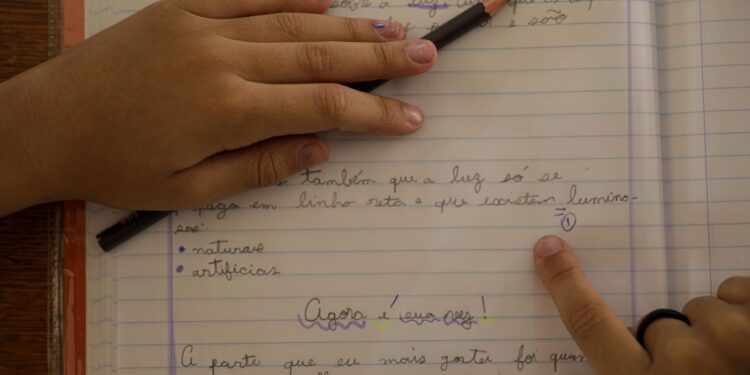 a luz
e são
também que a luz só se
em linha reta e que existem lumino-
sos:
• naturais
• artificias
①
Agora é sua vez!
A parte que eu mais gostei foi quan